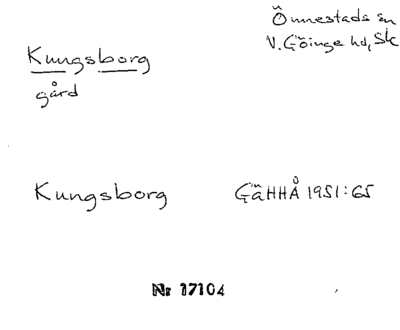 Önnestads sn
V. Göinge hd, Sk
Kungsborg
gård
Kungsborg GäHHÅ 1951:65
Nr 17104